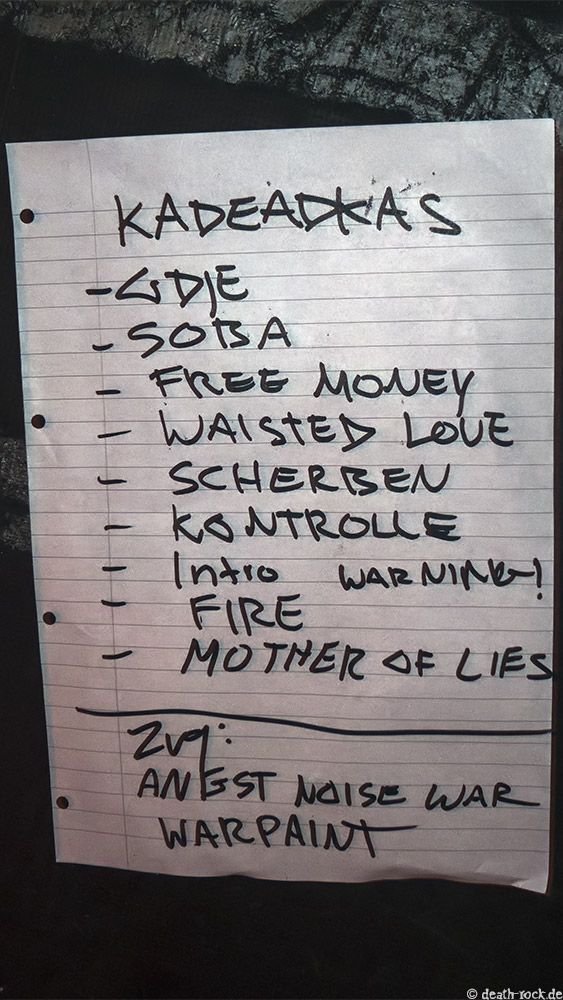 KADEADKAS
- GDJE
- SOBA
- FREE MONEY
- WAISTED LOVE
- SCHERBEN
- KONTROLLE
- Intro WARNING!
- FIRE
- MOTHER OF LIES
Zug:
ANGST NOISE WAR
WARPAINT
© death-rock.de